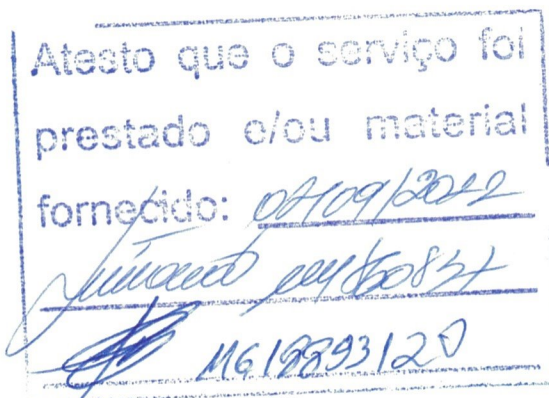 Atesto que o serviço foi
prestado e/ou material
fornecido: 02/09/2022
MG18893120